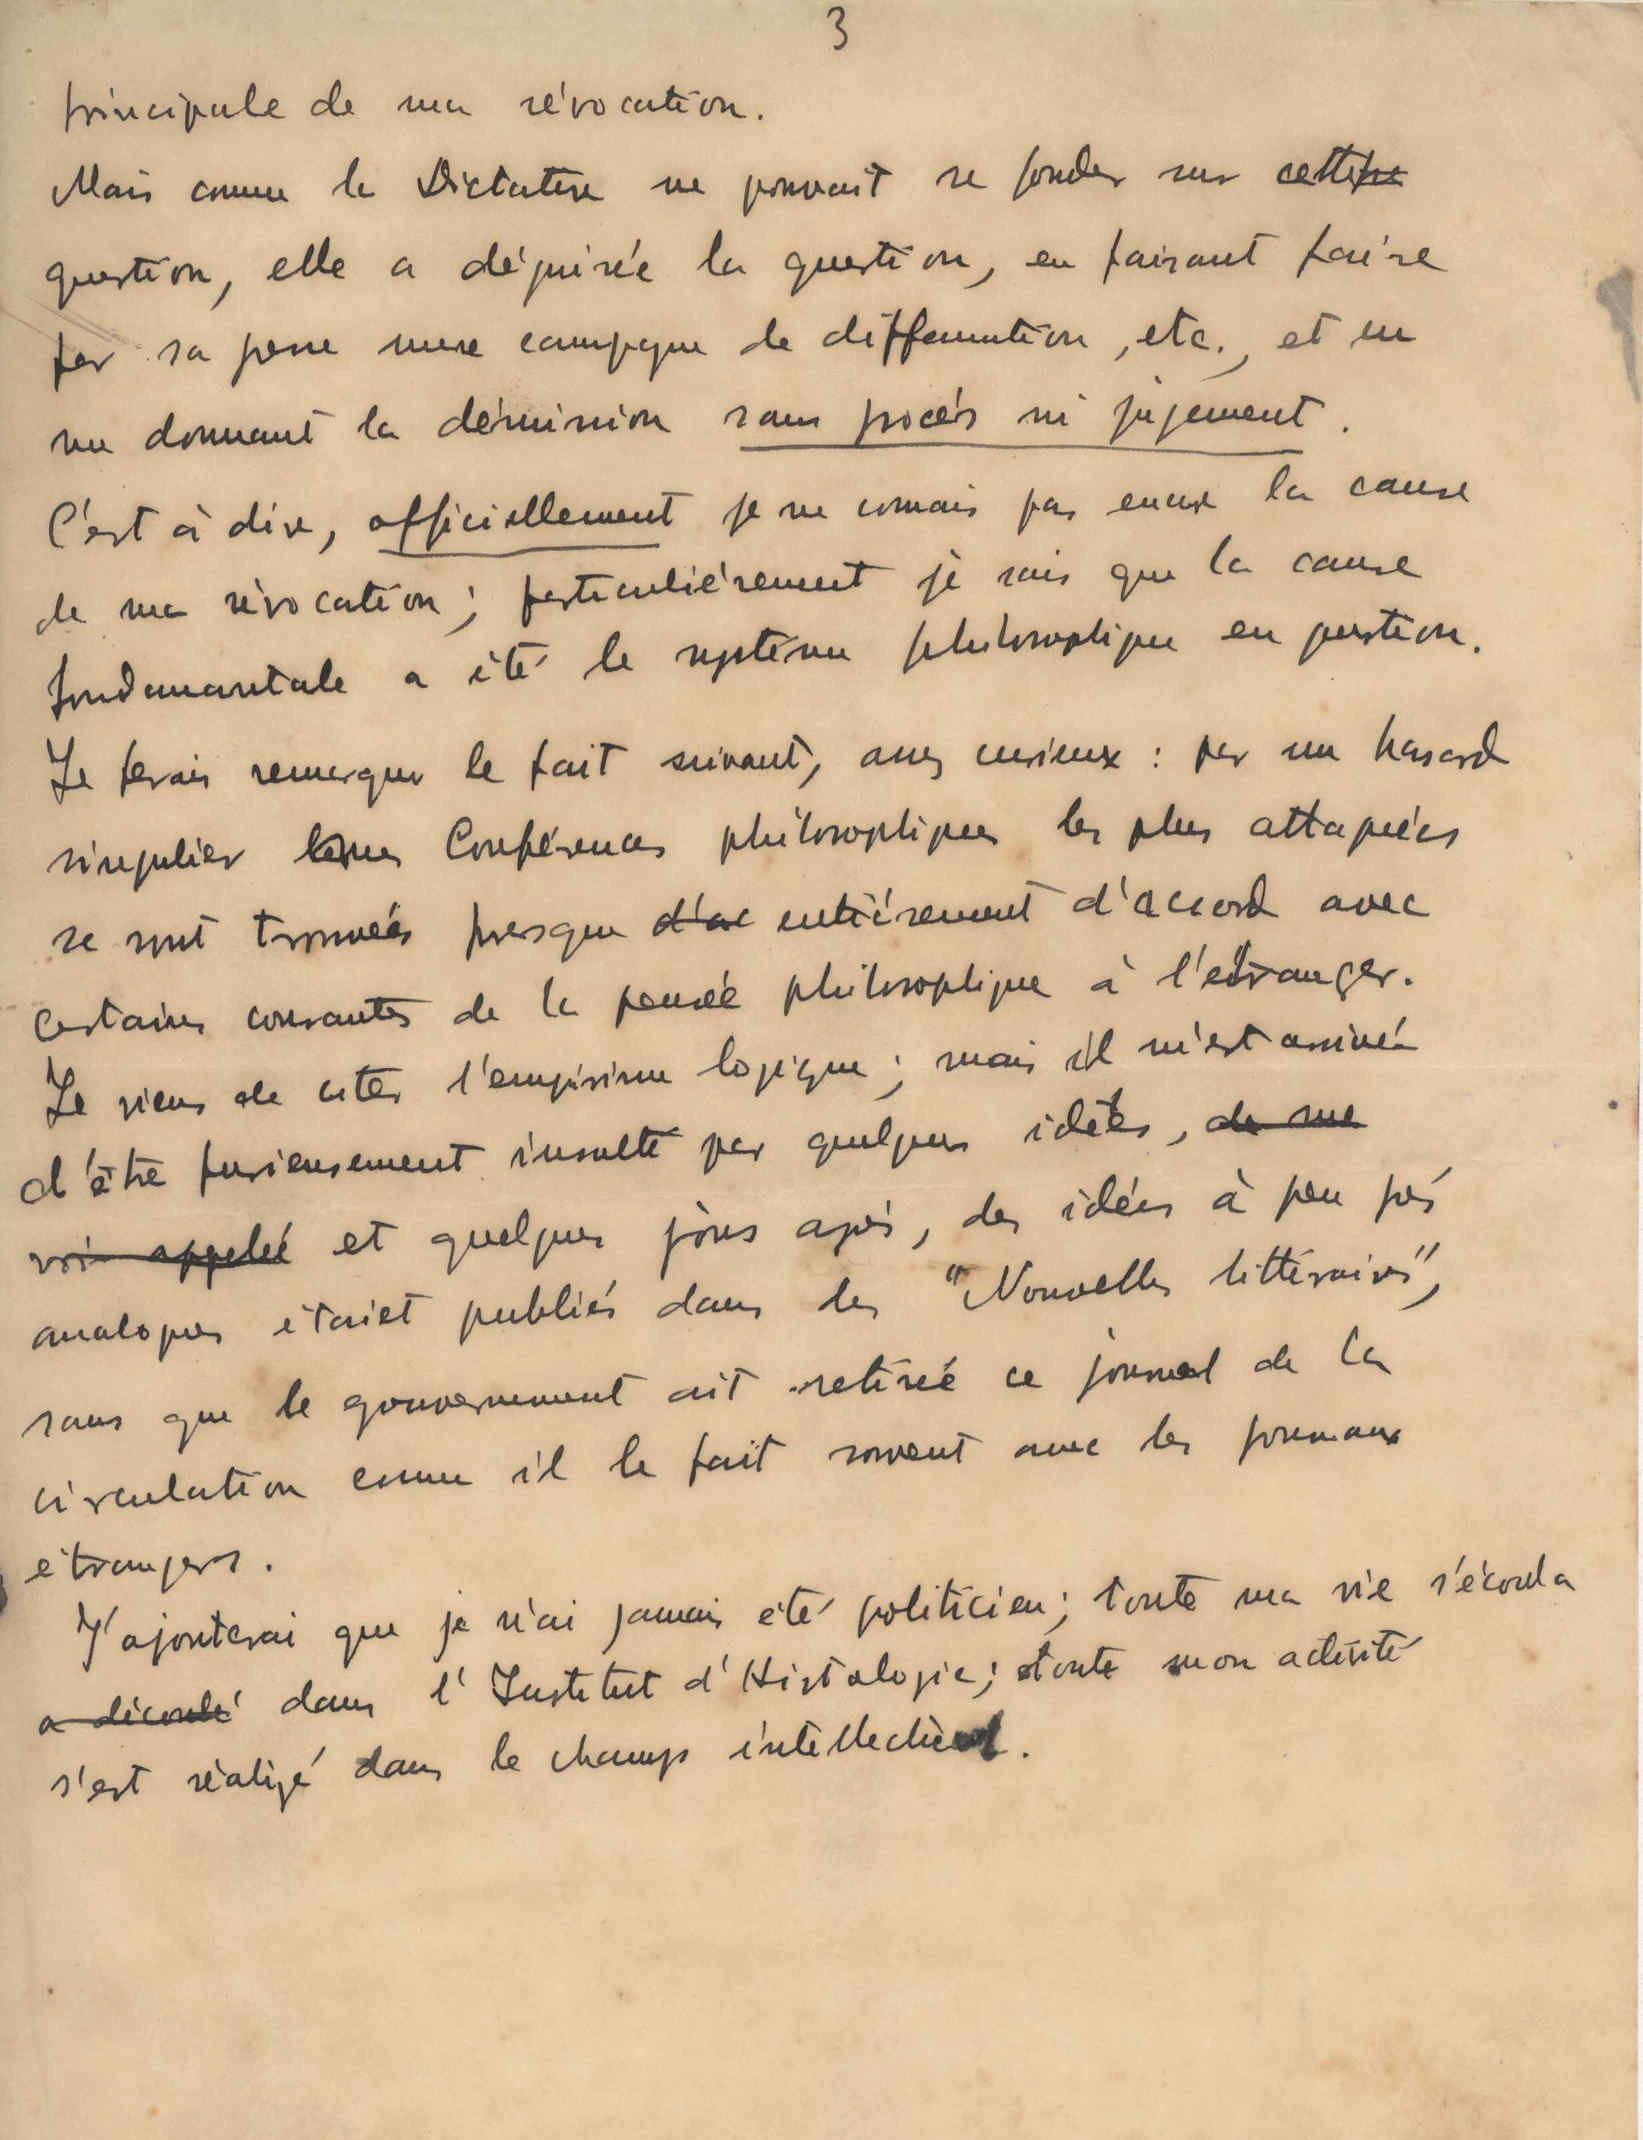 3
principale de ma révocation.
Mais comme la Dictature ne pouvait se fonder sur cette
question, elle a déguisée la question, en faisant faire
par sa presse une campagne de diffamation, etc., et en
me donnant la démission sans procès ni jugement.
C'est à dire, officiellement je ne connais pas encore la cause
de ma révocation; particulièrement je sais que la cause
fondamentale a été le système philosophique en question.
Je ferais remarquer le fait suivant, assez curieux : par un hasard
singulier mes Conférences philosophiques les plus attaquées
se sont trouvées presque d'ac entièrement d'accord avec
certaines courantes de la pensée philosophique à l'étranger.
Je viens de citer l'empirisme logique; mais il m'est arrivé
d'être furieusement insulté par quelques idées, de me
voir appelé et quelques jours après, des idées à peu près
analogues étaiet publiés dans les "Nouvelles littéraires",
sans que le gouvernement ait retirée ce journal de la
circulation comme il le fait souvent avec les journaux
étrangers.
J'ajouterai que je n'ai jamais été politicien; toute ma vie s'écoula
a découlé dans l'Institut d'Histologie; toute mon activité
s'est réalizé dans le champs intellectuel.